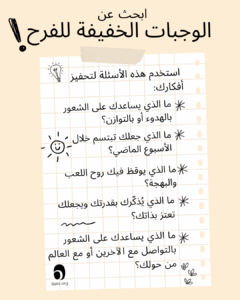 ابحث عن
الوجبات الخفيفة للفرح!
استخدم هذه الأسئلة لتحفيز
أفكارك:
ما الذي يساعدك على الشعور
بالهدوء أو بالتوازن؟
ما الذي جعلك تبتسم خلال
الأسبوع الماضي؟
ما الذي يوقظ فيك روح اللعب
والبهجة؟
ما الذي يُذكّرك بقدرتك ويجعلك
تعتز بذاتك؟
ما الذي يساعدك على الشعور
بالتواصل مع الآخرين أو مع العالم
من حولك؟